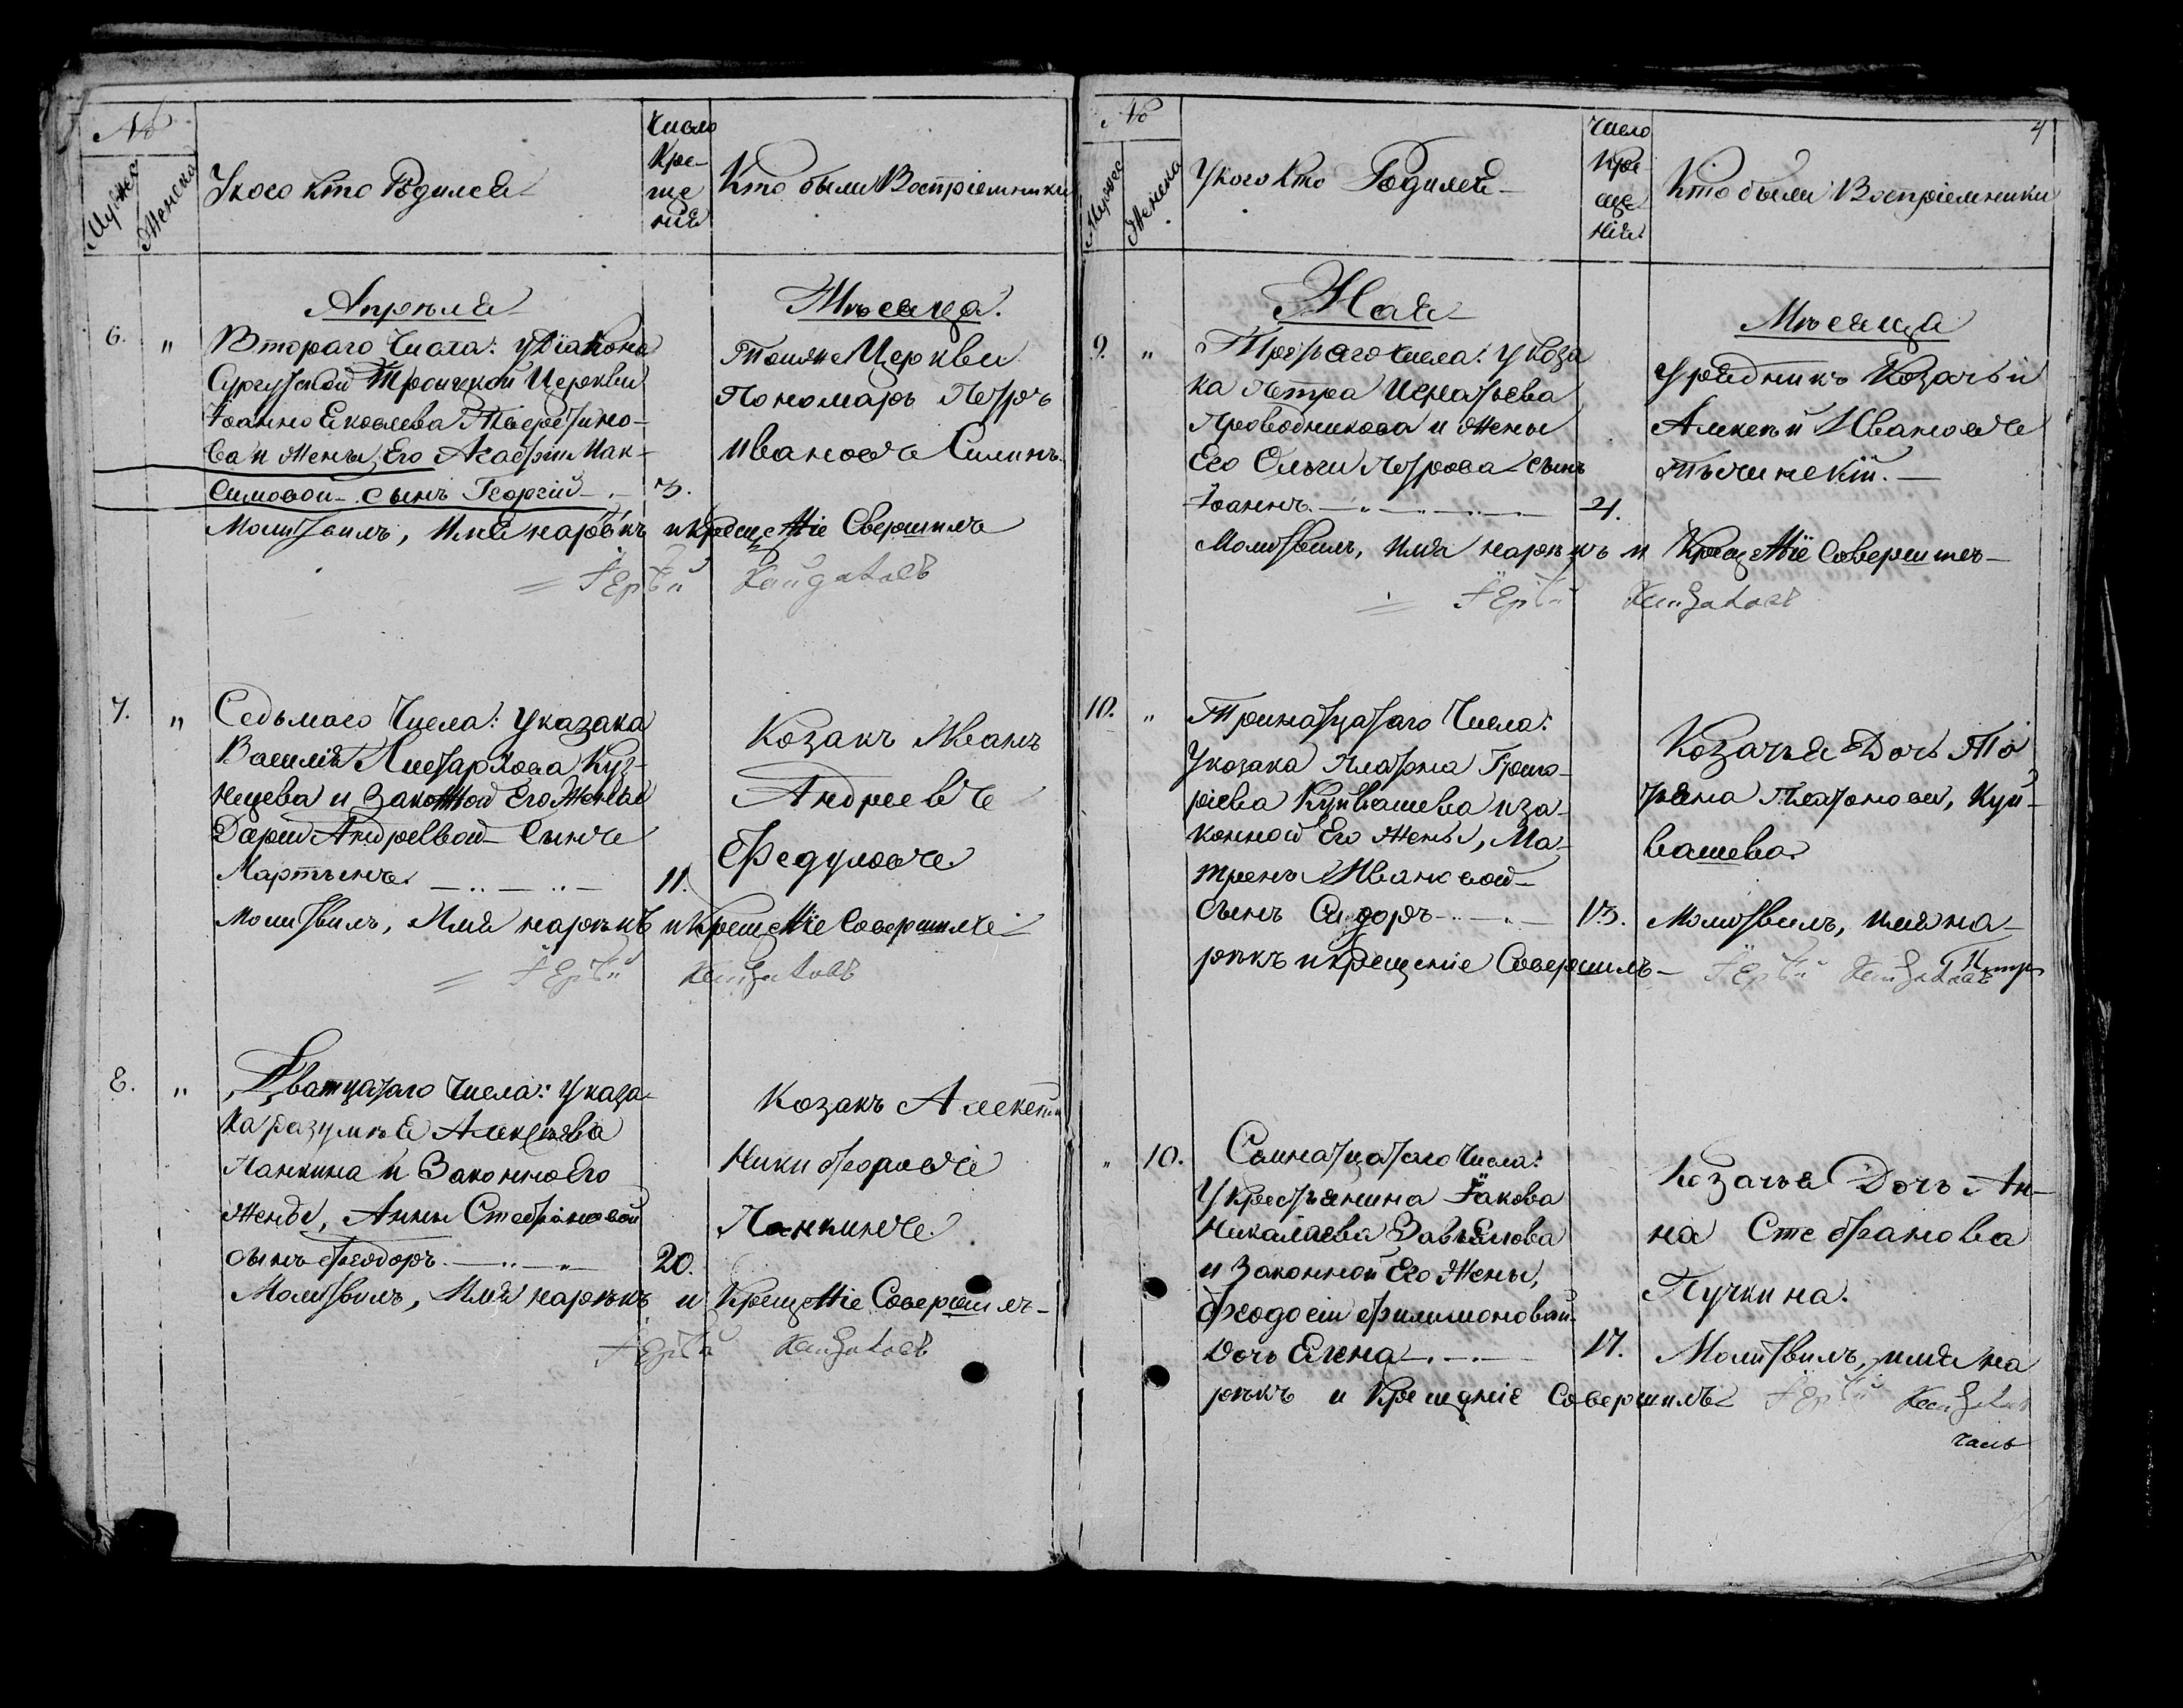 №
Мужес
Женска
У кого кто Родился
Число
Кре-
ще
нія
Кто были Воспріемники
Апрѣля
Мѣсяца.
6. "
Втораго Числа: у Діакона
Сургутской Троицкой Церкви
Іоанна Яковлева Тверетино-
ва и жены Его Агафіи Мак-
симовой сынъ Георгій 3.
Тоя же Церкви
Пономарь Петръ
Ивановъ Силинъ.
Молитвилъ, Имя нарѣкъ и Крещеніе Свершилъ
Іерѣй Кайдаловъ
7. "
Седьмаго Числа: у казака
Василія Листархова Куз-
нецева и Законной Его Жены
Дарьи Андреевой Сынъ
Мартынъ. 11.
Козакъ Иванъ
Андреевъ
Федуловъ
Молитвилъ, Имя нарѣкъ и Крещеніе Совершилъ
Іерѣй Кайдаловъ
8. "
Дватцатаго Числа: у каза-
ка Разумнѣя Алексѣева
Панкина и Законно Его
Жены, Анны Стефановой
сынъ Феодоръ 20.
Козакъ Алексѣй
Никифоровъ
Панкинъ.
Молитвилъ, Имя нарѣкъ и Крещеніе Совершилъ-
Іерѣй Кайдаловъ
№
Мужес
Женска
У кого Кто Родился
Число
Кре-
ще
нія.
Кто были Воспріемники
4
Мая
Мѣсяца
9. "
Третьяго числа: у Коза
ка Петра Игнатьева
Проводникова и Жены
Его Ольги Петрова сынъ
Іоаннъ. 4.
Урядникъ Козачьй
Алексѣй Ивановъ
Тѣчинскій.
Молитвилъ, Имя нарѣкъ и Крещеніе Совершилъ
Іерѣй Кайдаловъ
10. "
Тринатцатаго Числа:
У козака Платона Григо-
ріева Куйвашева и за-
конной Его Жены, Ма-
трены Ивановой
Сынъ Сидоръ 13.
Козачья Дочь Та
тьяна Платонова, Куй-
вашева.
Молитвилъ, имя на-
рѣкъ и крещеніе Совершилъ Іерѣй Кайдаловъ
" 10.
Семнатцатаго Числа:
У Крестьянина Іакова
Николаева Завьялова
и Законной Его Жены,
Феодосіи Филимоновой
Дочь Елена 17.
Козачья Дочь Ан-
на Стефанова
Пучкина.
Молитвилъ, имя на
рѣкъ и Крещеніе Совершилъ Іерѣй Кайдаловъ